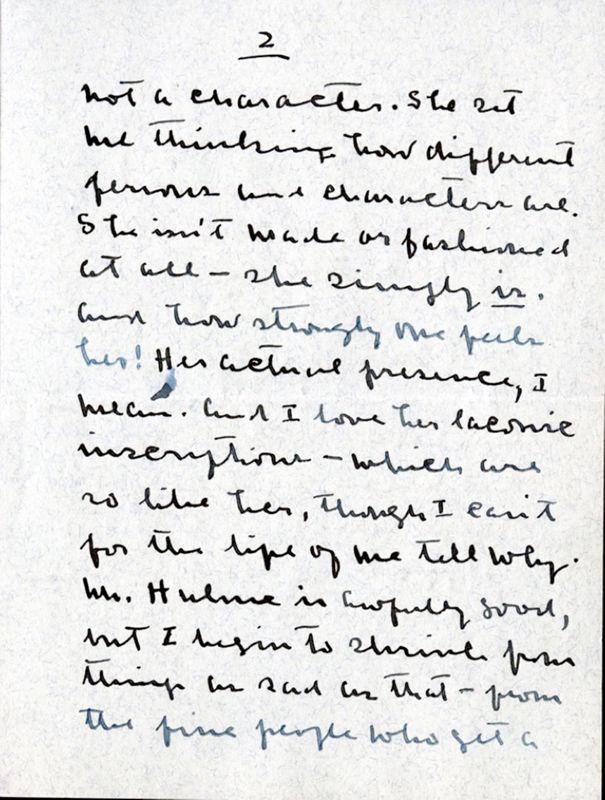 2
not a character. She set
me thinking how different
persons and characters are.
She isn't made or fashioned
at all – she simply is.
And how strongly one feels
her! Her actual presence, I
mean. And I love her laconic
inscriptions – which are
so like her, though I can't
for the life of me tell why.
Mr. Hulme is awfully good,
but I begin to shrink from
things as sad as that – from
the fine people who get a